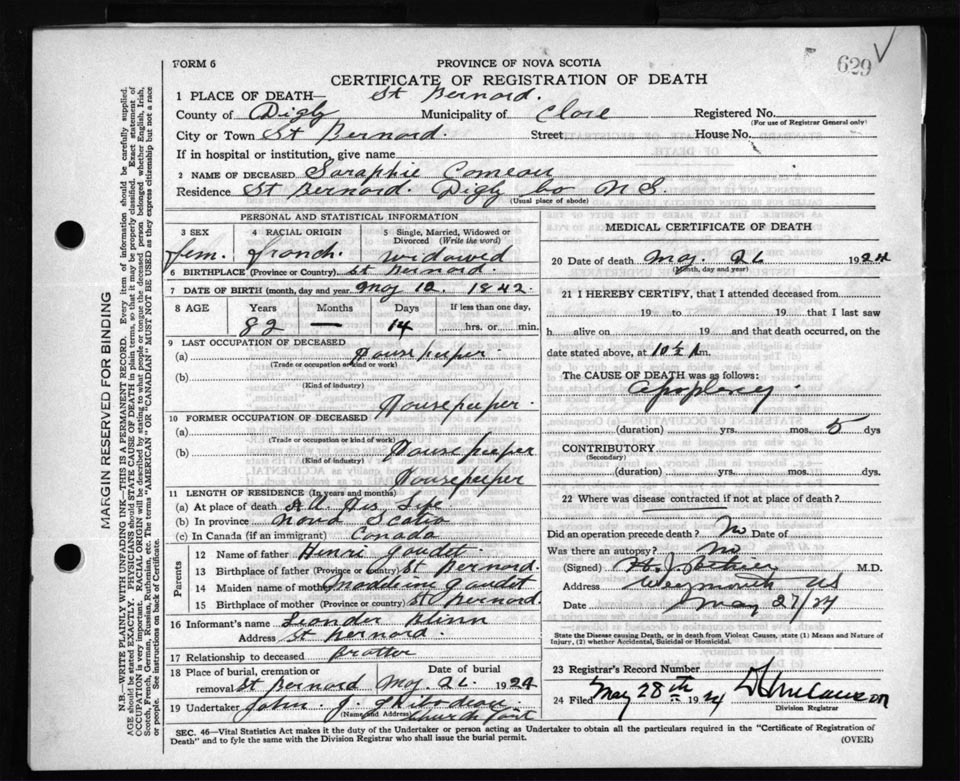 FORM 6
PROVINCE OF NOVA SCOTIA
629
CERTIFICATE OF REGISTRATION OF DEATH
1 PLACE OF DEATH— St Bernard.
County of Digby Municipality of Clare Registered No.
(For use of Registrar General only)
City or Town St Bernard. Street House No.
If in hospital or institution, give name
2 NAME OF DECEASED Saraphie Comeau
Residence St Bernard. Digby Co N S.
(Usual place of abode)
PERSONAL AND STATISTICAL INFORMATION
3 SEX fem.
4 RACIAL ORIGIN french.
5 Single, Married, Widowed or Divorced (Write the word) widowed
6 BIRTHPLACE (Province or Country) St Bernard.
7 DATE OF BIRTH (month, day and year May 12. 1842.
8 AGE Years Months Days If less than one day,
82 — 14 hrs. or min.
9 LAST OCCUPATION OF DECEASED
(a) Housekeeper.
(Trade or occupation or kind of work)
(b)
(Kind of industry)
Housekeeper.
10 FORMER OCCUPATION OF DECEASED
(a)
(Trade or occupation or kind of work)
(b) Housekeeper
(Kind of industry)
Housekeeper
11 LENGTH OF RESIDENCE (In years and months)
(a) At place of death All His Life
(b) In province Nova Scotia
(c) In Canada (if an immigrant) Canada
Parents
12 Name of father Henri Gaudet.
13 Birthplace of father (Province or Country) St Bernard.
14 Maiden name of mother Madeline Gaudet
15 Birthplace of mother (Province or country) St Bernard.
16 Informant's name Leander Blinn
Address St Bernard.
17 Relationship to deceased Brotter
18 Place of burial, cremation or removal St Bernard Date of burial May 26. 1924
19 Undertaker John J.
(Name and Address) Church Point
MEDICAL CERTIFICATE OF DEATH
20 Date of death May. 26 1924
(Month, day and year)
21 I HEREBY CERTIFY, that I attended deceased from
19 to 19 that I last saw
h alive on 19 and that death occurred, on
date stated above, at 10½ A m.
The CAUSE OF DEATH was as follows:
Apoplexy.
(duration) yrs. mos. 5 dys
CONTRIBUTORY
(Secondary)
(duration) yrs. mos. dys.
22 Where was disease contracted if not at place of death?
Did an operation precede death? No Date of
Was there an autopsy? No
(Signed) M.D.
Address Weymouth NS
Date May 27/24
State the Disease causing Death, or in death from Violent Causes, state (1) Means and Nature of Injury, (2) whether Accidental, Suicidal or Homicidal.
23 Registrar's Record Number
24 Filed May 28th 1924
Division Registrar
SEC. 46—Vital Statistics Act makes it the duty of the Undertaker or person acting as Undertaker to obtain all the particulars required in the "Certificate of Registration of
Death" and to fyle the same with the Division Registrar who shall issue the burial permit.
(OVER)
MARGIN RESERVED FOR BINDING
N.B.—WRITE PLAINLY WITH UNFADING INK—THIS IS A PERMANENT RECORD. Every item of information should be carefully supplied.
AGE should be stated EXACTLY. PHYSICIANS should STATE CAUSE OF DEATH in plain terms, so that it may be properly classified. Exact statement of
OCCUPATION is very important. RACIAL ORIGIN will be described by stating to what people or tongue the deceased person belonged whether English, Irish,
Scotch, French, German, Russian, Ruthenian, etc. The terms "AMERICAN" OR "CANADIAN" MUST NOT BE USED as they express citizenship but not a race
or people. See instructions on back of Certificate.